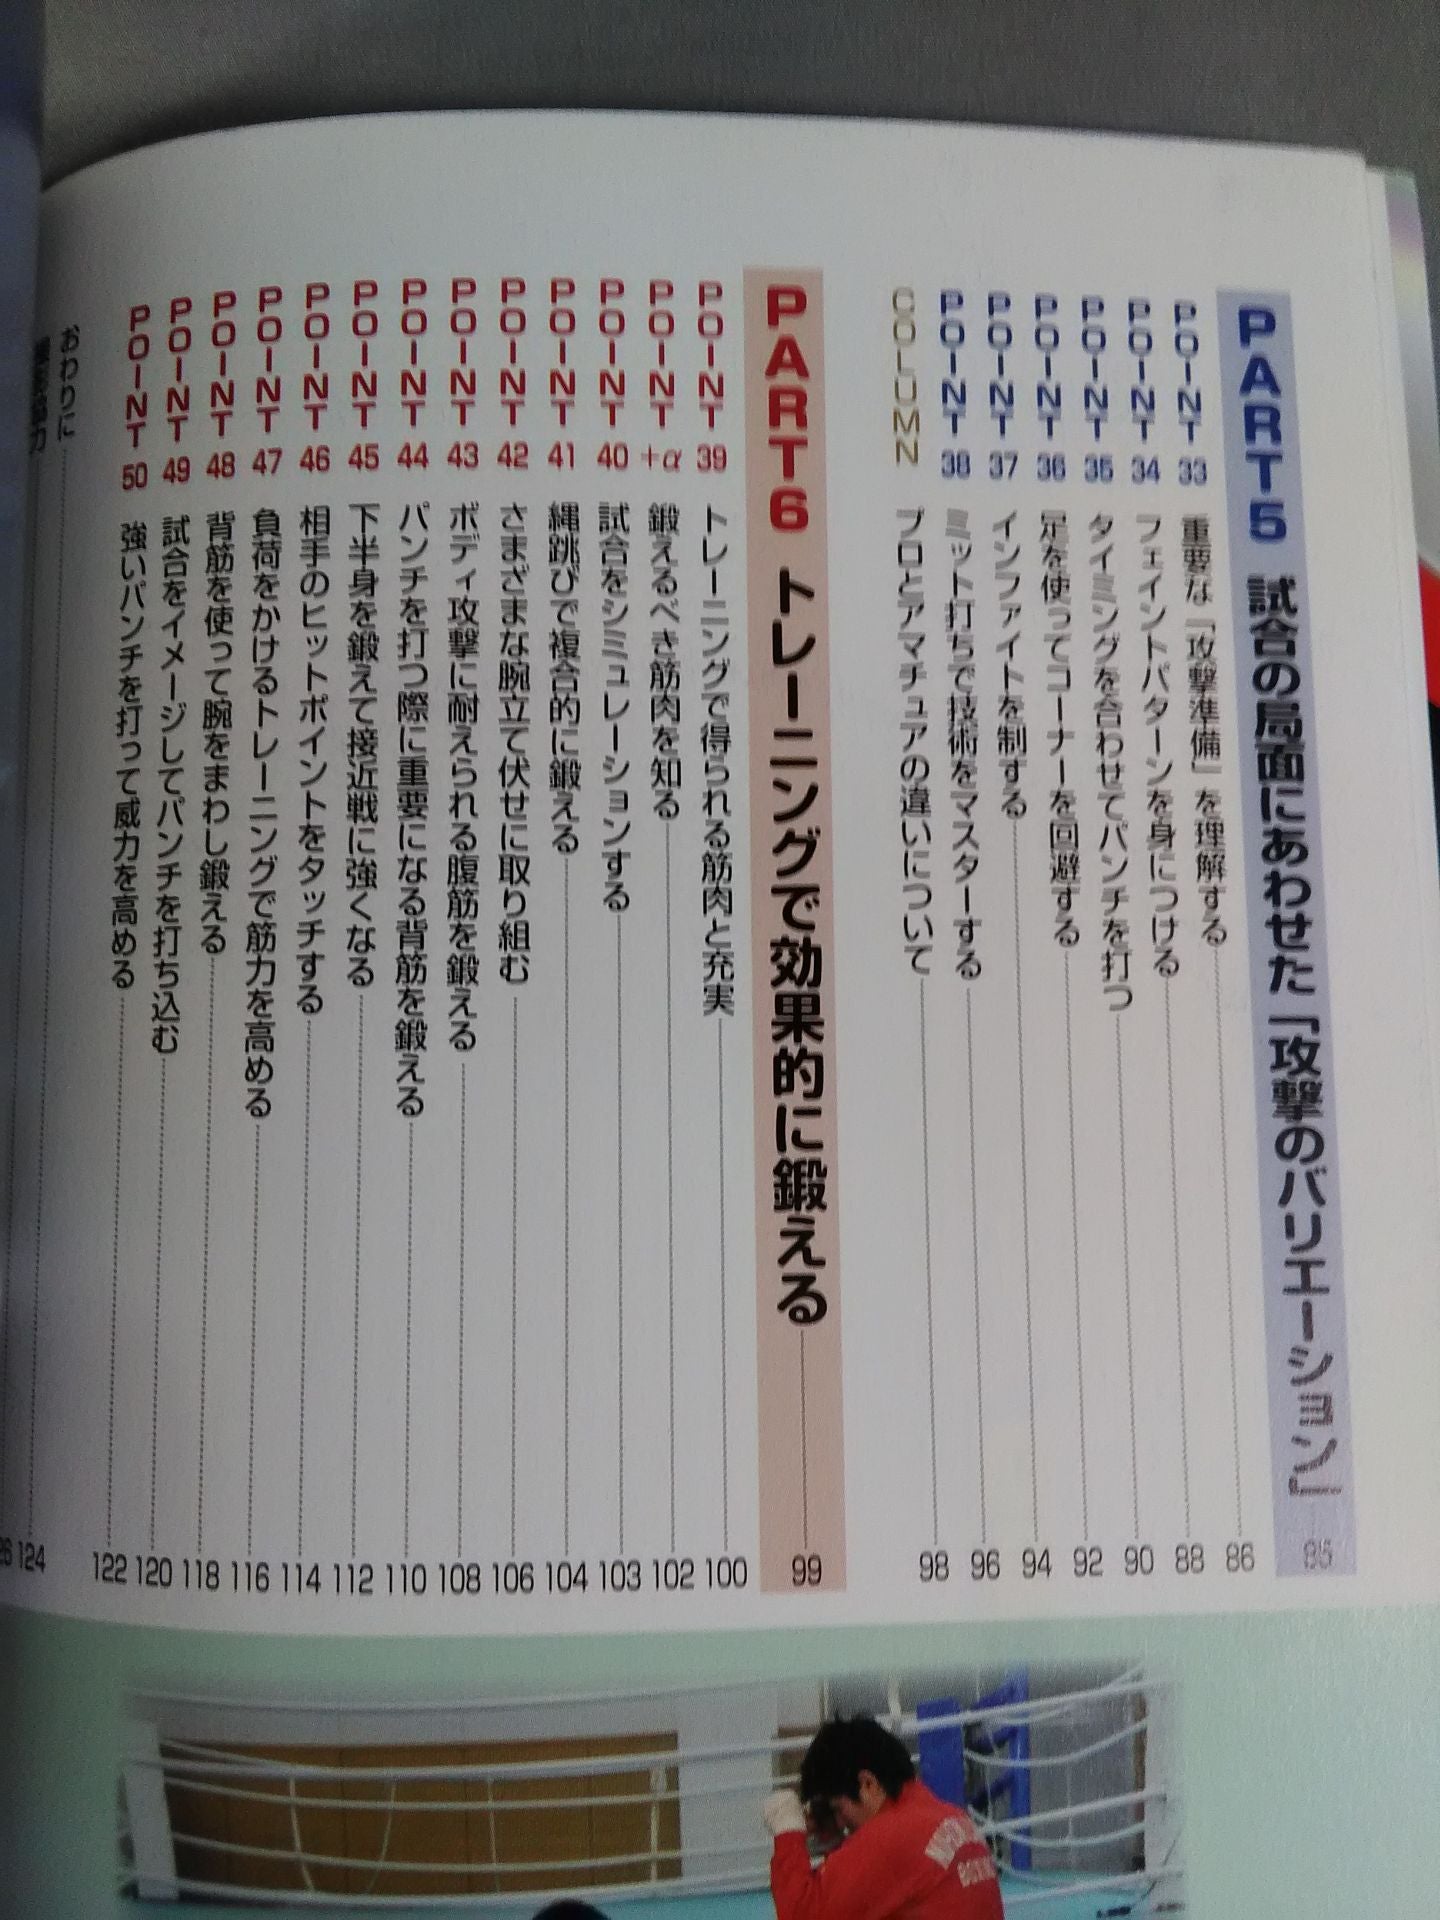 PART5 試合の局面にあわせた「攻撃のバリエーション」 85
POINT 33 重要な「攻撃準備」を理解する 86
POINT 34 フェイントパターンを身につける 88
POINT 35 タイミングを合わせてパンチを打つ 90
POINT 36 足を使ってコーナーを回避する 92
POINT 37 インファイトを制する 94
POINT 38 ミット打ちで技術をマスターする 96
COLUMN プロとアマチュアの違いについて 98
PART6 トレーニングで効果的に鍛える 99
POINT 39 トレーニングで得られる筋肉と充実 100
POINT +α 鍛えるべき筋肉を知る 102
POINT 40 試合をシミュレーションする 103
POINT 41 縄跳びで複合的に鍛える 104
POINT 42 さまざまな腕立て伏せに取り組む 106
POINT 43 ボディ攻撃に耐えられる腹筋を鍛える 108
POINT 44 パンチを打つ際に重要になる背筋を鍛える 110
POINT 45 下半身を鍛えて接近戦に強くなる 112
POINT 46 相手のヒットポイントをタッチする 114
POINT 47 負荷をかけるトレーニングで筋力を高める 116
POINT 48 背筋を使って腕をまわし鍛える 118
POINT 49 試合をイメージしてパンチを打ち込む 120
POINT 50 強いパンチを打って威力を高める 122
おわりに 124